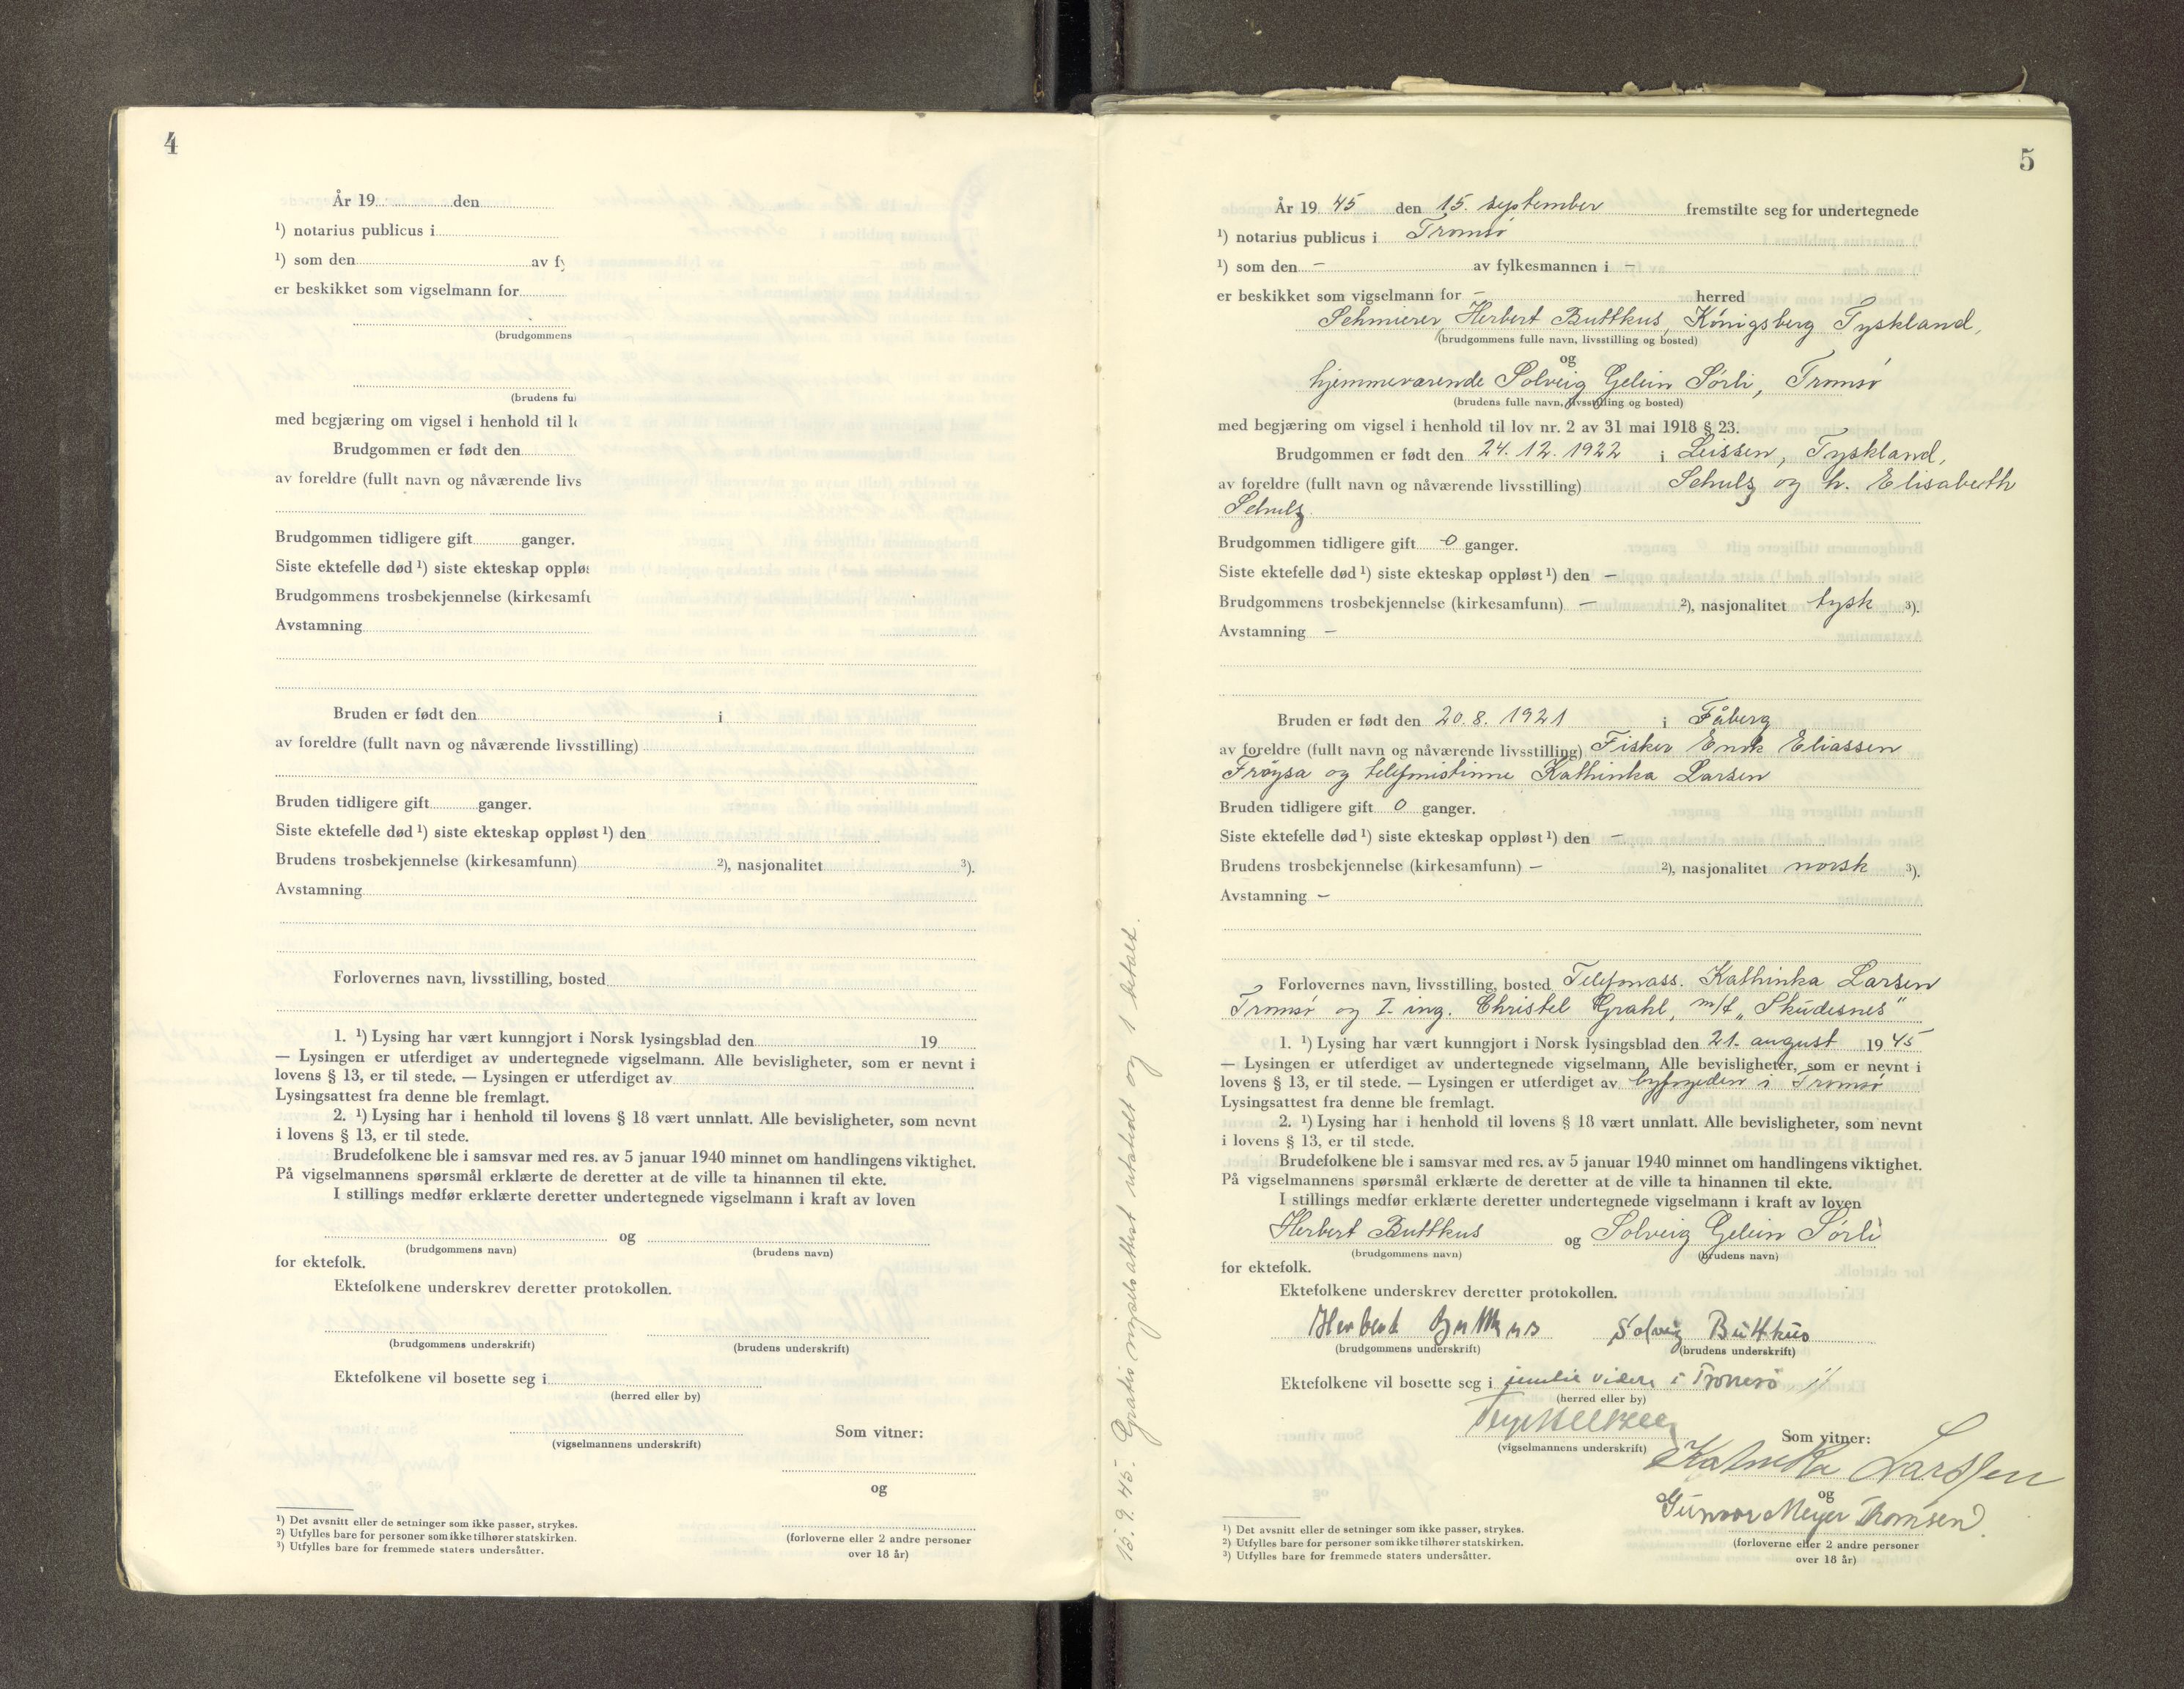 4
År 19 den
¹) notarius publicus i
¹) som den av fy
er beskikket som vigselmann for
(brudgommens
(brudens fu
med begjæring om vigsel i henhold til lo
Brudgommen er født den
av foreldre (fullt navn og nåværende livs
Brudgommen tidligere gift ganger.
Siste ektefelle død ¹) siste ekteskap oppløs
Brudgommens trosbekjennelse (kirkesamfu
Avstamning
Bruden er født den i
av foreldre (fullt navn og nåværende livsstilling)
Bruden tidligere gift ganger.
Siste ektefelle død ¹) siste ekteskap oppløst ¹) den
Brudens trosbekjennelse (kirkesamfunn) ²), nasjonalitet ³).
Avstamning
Forlovernes navn, livsstilling, bosted
1. ¹) Lysing har vært kunngjort i Norsk lysingsblad den 19
— Lysingen er utferdiget av undertegnede vigselmann. Alle bevisligheter, som er nevnt i
lovens § 13, er til stede. — Lysingen er utferdiget av
Lysingsattest fra denne ble fremlagt.
2. ¹) Lysing har i henhold til lovens § 18 vært unnlatt. Alle bevisligheter, som nevnt
i lovens § 13, er til stede.
Brudefolkene ble i samsvar med res. av 5 januar 1940 minnet om handlingens viktighet.
På vigselmannens spørsmål erklærte de deretter at de ville ta hinannen til ekte.
I stillings medfør erklærte deretter undertegnede vigselmann i kraft av loven
og
(brudgommens navn) (brudens navn)
for ektefolk.
Ektefolkene underskrev deretter protokollen.
(brudgommens underskrift) (brudens underskrift)
Ektefolkene vil bosette seg i
(herred eller by)
Som vitner:
(vigselmannens underskrift)
og
¹) Det avsnitt eller de setninger som ikke passer, strykes.
²) Utfylles bare for personer som ikke tilhører statskirken.
³) Utfylles bare for fremmede staters undersåtter.
(forloverne eller 2 andre personer
over 18 år)
5
År 19 45 den 15. september fremstilte seg for undertegnede
¹) notarius publicus i Tromsø
¹) som den – av fylkesmannen i –
er beskikket som vigselmann for – herred
Schmierer, Herbert Buttkus, Königsberg Tyskland,
(brudgommens fulle navn, livsstilling og bosted)
og
hjemmeværende Solveig Gelein Sørli, Tromsø
(brudens fulle navn, livsstilling og bosted)
med begjæring om vigsel i henhold til lov nr. 2 av 31 mai 1918 § 23.
Brudgommen er født den 24. 12. 1922 i Leissen, Tyskland,
av foreldre (fullt navn og nåværende livsstilling) Schulz og h. Elisabeth
Schulz.
Brudgommen tidligere gift 0 ganger.
Siste ektefelle død ¹) siste ekteskap oppløst ¹) den –
Brudgommens trosbekjennelse (kirkesamfunn) – ²), nasjonalitet tysk ³).
Avstamning –
Bruden er født den 20. 8. 1921 i Fåberg
av foreldre (fullt navn og nåværende livsstilling) Fisker Enok Eliassen
Frøysa og telefonistinne Kathinka Larsen
Bruden tidligere gift 0 ganger.
Siste ektefelle død ¹) siste ekteskap oppløst ¹) den –
Brudens trosbekjennelse (kirkesamfunn) – ²), nasjonalitet norsk ³).
Avstamning –
Forlovernes navn, livsstilling, bosted Telefonass. Kathinka Larsen
Tromsø og I. ing. Christel Grahl, m/t „Skudesnes"
1. ¹) Lysing har vært kunngjort i Norsk lysingsblad den 21. august 19 45
— Lysingen er utferdiget av undertegnede vigselmann. Alle bevisligheter, som er nevnt i
lovens § 13, er til stede. — Lysingen er utferdiget av byfogden i Tromsø
Lysingsattest fra denne ble fremlagt.
2. ¹) Lysing har i henhold til lovens § 18 vært unnlatt. Alle bevisligheter, som nevnt
i lovens § 13, er til stede.
Brudefolkene ble i samsvar med res. av 5 januar 1940 minnet om handlingens viktighet.
På vigselmannens spørsmål erklærte de deretter at de ville ta hinannen til ekte.
I stillings medfør erklærte deretter undertegnede vigselmann i kraft av loven
Herbert Buttkus og Solveig Gelein Sørli
(brudgommens navn) (brudens navn)
for ektefolk.
Ektefolkene underskrev deretter protokollen.
Herbert Buttkus Solveig Buttkus
(brudgommens underskrift) (brudens underskrift)
Ektefolkene vil bosette seg i inntil videre i Tromsø
(herred eller by)
Som vitner:
(vigselmannens underskrift)
Kathinka Larssen
og
Gunvor Meyer Thomsen.
¹) Det avsnitt eller de setninger som ikke passer, strykes.
²) Utfylles bare for personer som ikke tilhører statskirken.
³) Utfylles bare for fremmede staters undersåtter.
(forloverne eller 2 andre personer
over 18 år)
15. 9. 45. Gratis vigselsattest utstedt og 1 betalt.